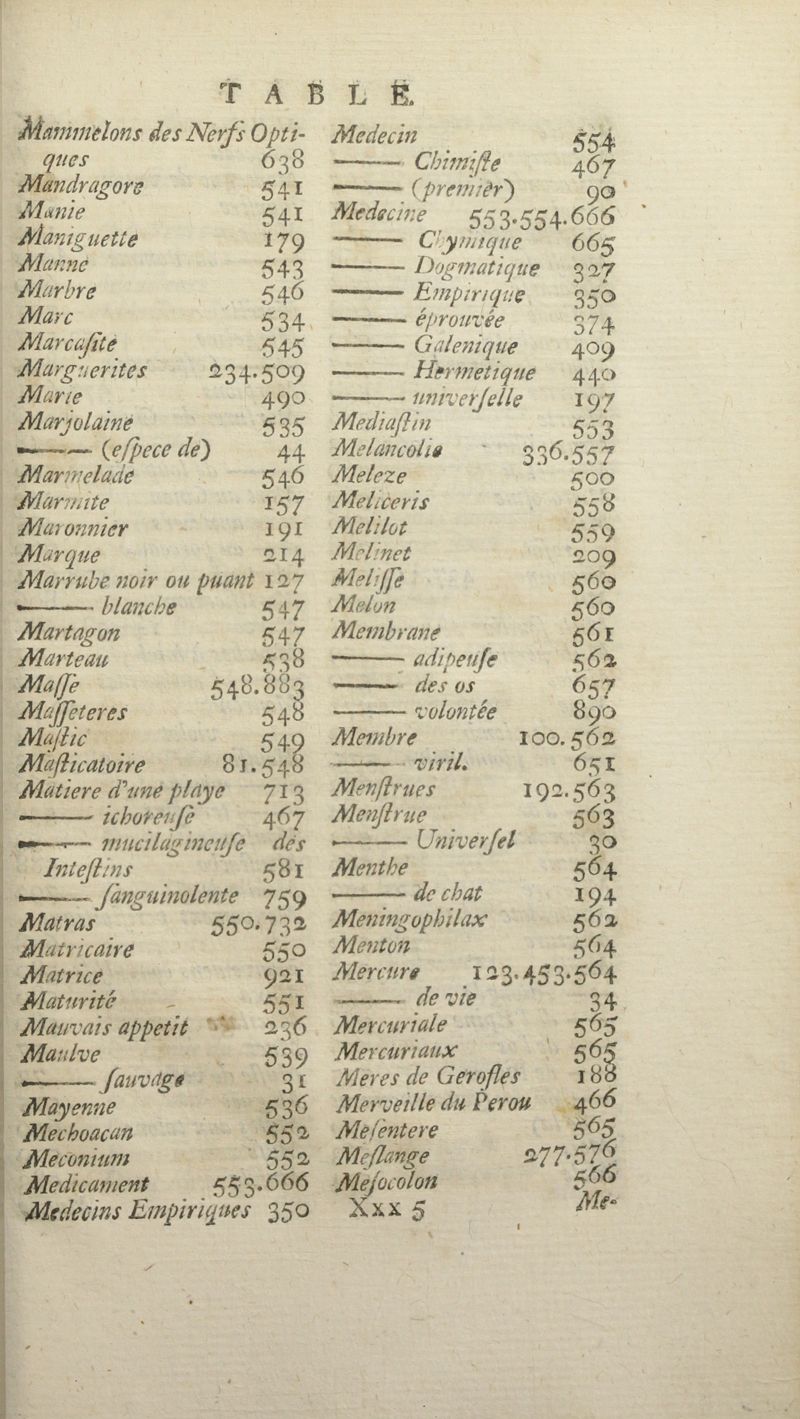 TABLE.
Mammelons des Nerfs Opti-
ques 638
Mandragore 541
Manie 541
Maniguette 179
Manne 543
Marbre 546
Marc 534
Marcaſite 545
Marguerites 234.509
Marie 490
Marjolaine 535
——— (eſpece de) 44
Marmelade 546
Marmite 157
Maronnier 191
Marque 214
Marrube noir ou puant 127
——— blanche 547
Martagon 547
Marteau 538
Maſſe 548.883
Maſſeteres 548
Maſtic 549
Maſticatoire 81.548
Matiere d'une playe 713
——— ichoreuſe 467
——— mucilagineuſe des
Inteſtins 581
——— ſanguinolente 759
Matras 550.732
Matricaire 550
Matrice 921
Maturité 551
Mauvais appetit 236
Maulve 539
——— ſauvage 31
Mayenne 536
Mechoacan 552
Meconium 552
Medicament 553.666
Medecins Empiriques 350
Medecin 554
——— Chimiſte 467
——— (premier) 90
Medecine 553.554.666
——— Chymique 665
——— Dogmatique 327
——— Empirique 350
——— éprouvée 374
——— Galenique 409
——— Hermetique 440
——— univerſelle 197
Mediaſtin 553
Melancolie 336.557
Meleze 500
Meliceris 558
Melilot 559
Melinet 209
Meliſſe 560
Melon 560
Membrane 561
——— adipeuſe 562
——— des os 657
——— volontée 890
Membre 100.562
——— viril. 651
Menſtrues 192.563
Menſtrue 563
——— Univerſel 30
Menthe 564
——— de chat 194
Meningophilax 562
Menton 564
Mercure 123.453.564
——— de vie 34
Mercuriale 565
Mercuriaux 565
Meres de Gerofles 188
Merveille du Perou 466
Meſentere 565
Meſlange 277.576
Meſocolon 566
Xxx 5 Me-